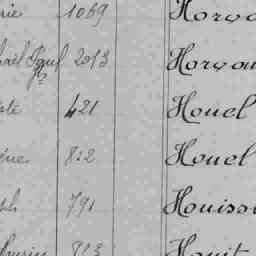 rie 1069 Horva
Paul 2013 Horvau
421 Houel
822 Houel
ph 791 Houisso
813 Houit